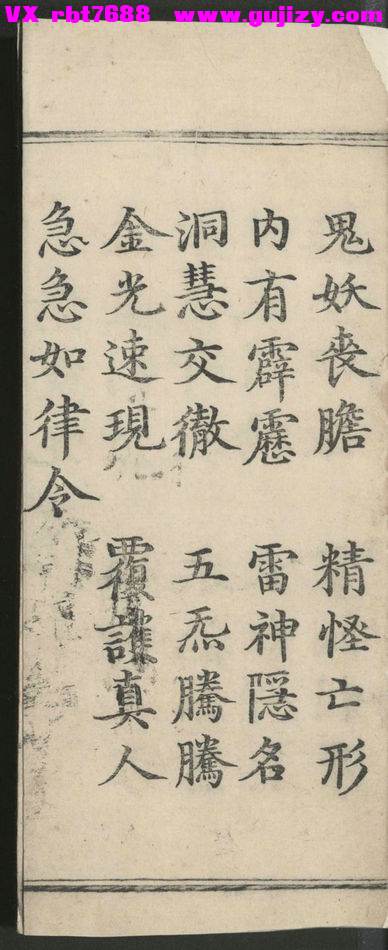 VX rbt7688 www.gujizy.com
鬼妖喪膽 精怪亡形
内有霹靂 雷神隱名
洞慧交徹 五炁騰騰
金光速現 覆護真人
急急如律令